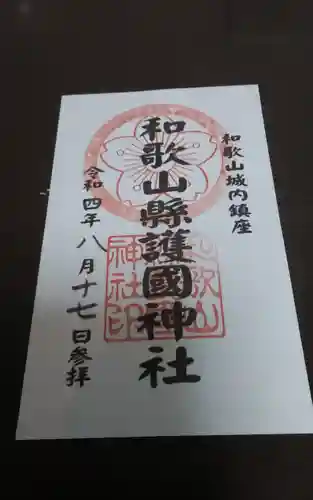 和歌山城内鎮座
和歌山縣護國神社
令和四年八月十七日参拝